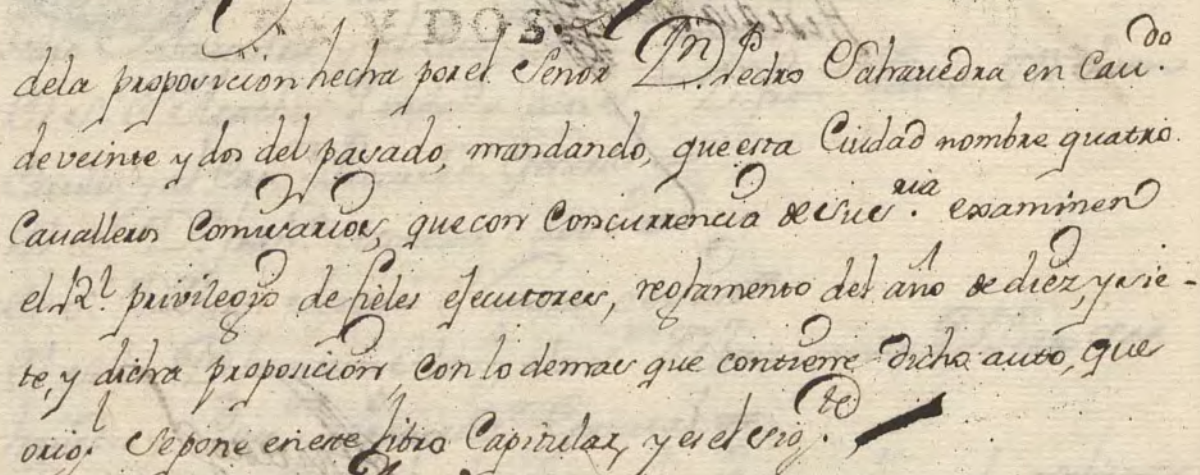 Y DOS.
dela proposicion hecha por el Señor Dn. Pedro Sahavedra en Cavdo.
de veinte y dos del pasado, mandando, que esta Ciudad nombre quatro
Cavalleros Comisarios, que con Concurrencia de su sria. examinen
el Rl. privilegio de fieles efecutores, reglamento del año de diez, y sie-
te, y dicha proposicion, con lo demas que contiene dicho auto, que
origl. se pone en este libro Capitular, y es el sigte.